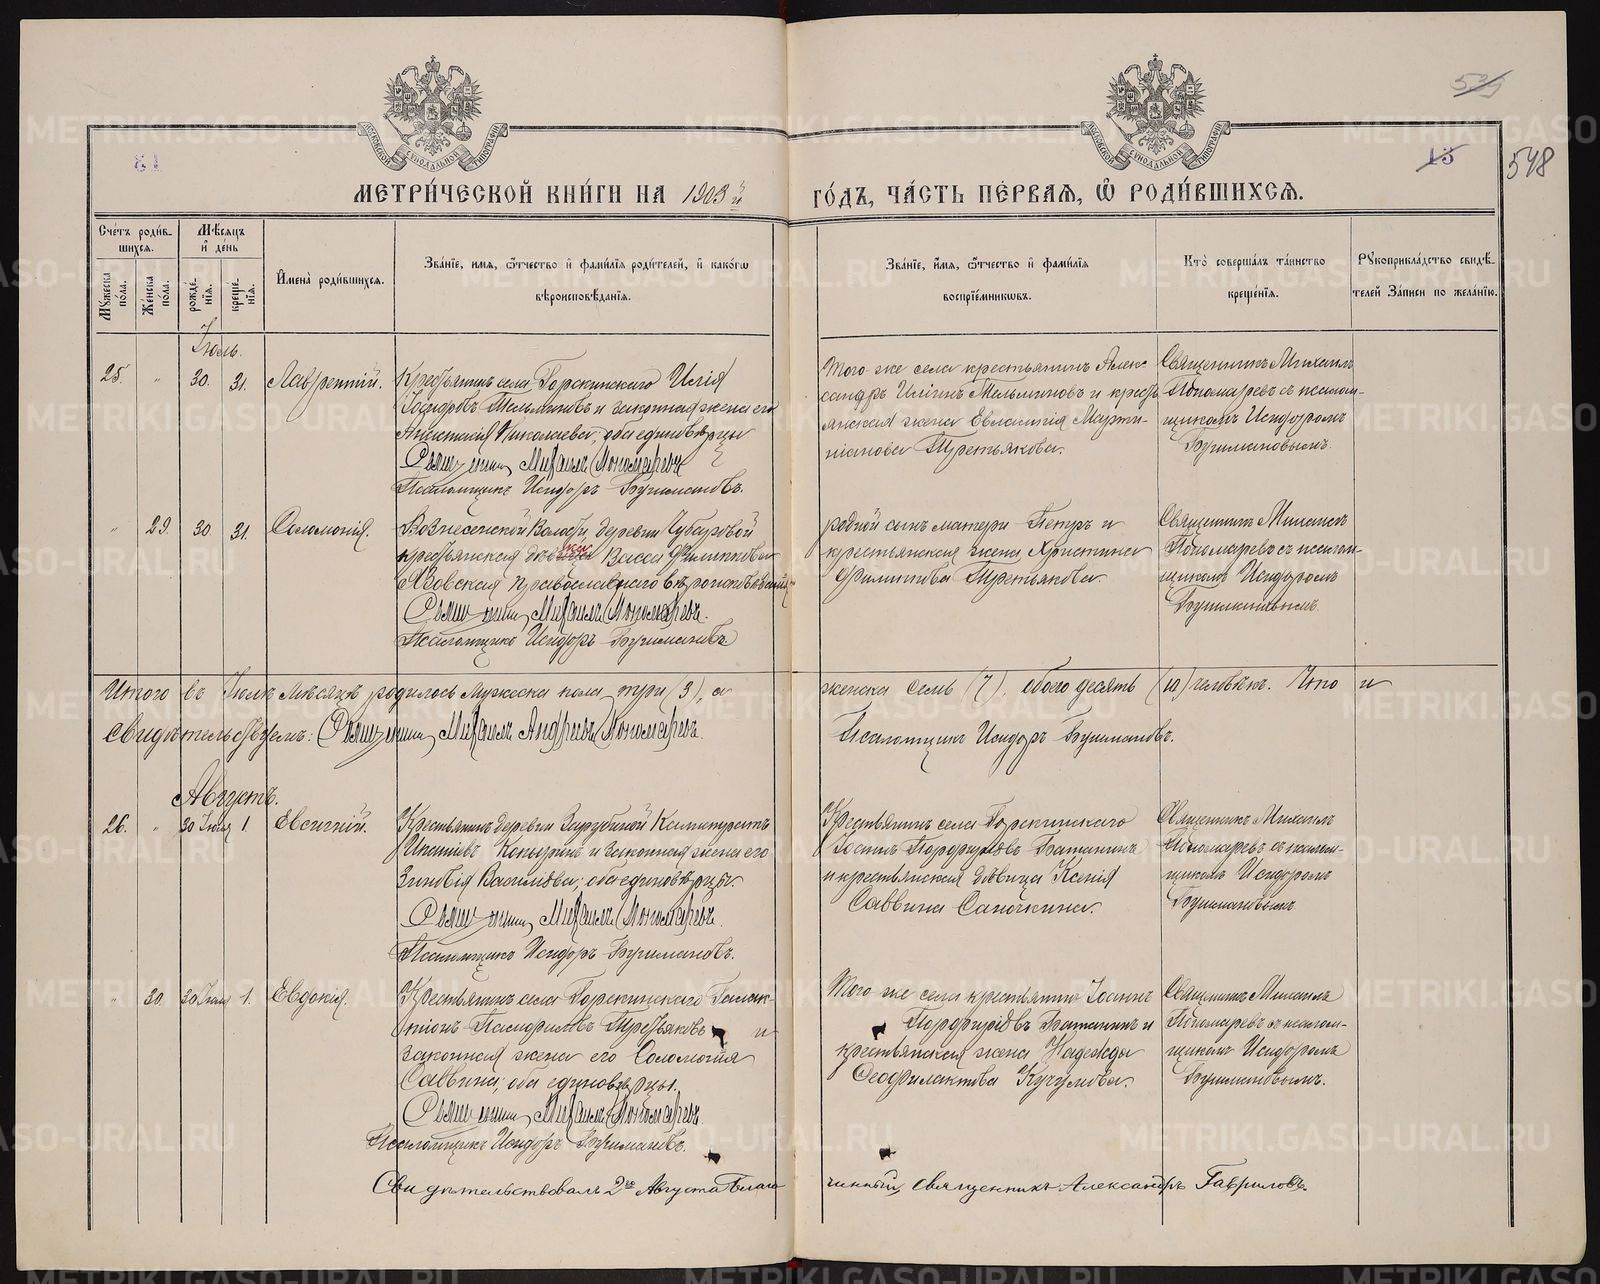 МЕТРИ́ЧЕСКОЙ КНИ́ГИ НА 1903 й
ГО́ДЪ, ЧА́СТЬ ПЕ́РВАѦ, Ѡ҆ РОДИ́ВШИХСѦ.
548
15
Сче́тъ роди́в-
шихсѧ.
Мꙋжеска по́ла.
Же́нска пола.
Мѣ́сѧцъ
и҆ де́нь
рожде́-
нїѧ.
креще́-
нїѧ.
И҆мена̀ роди́вшихсѧ.
Зва́нїе, имѧ, ѻ҆́тчество и҆ фами́лїѧ роди́телей, и҆ како́гѡ
вѣроисповѣ́данїѧ.
Зва́нїе, и҆́мѧ, ѻ҆́тчество и҆ фами́лїѧ
воспрїе́мникѡвъ.
Кто̀ соверша́лъ та́инство
креще́нїѧ.
Рꙋкоприкла́дство свидѣ́-
телей За́писи по жела́нїю.
Іюль.
25. " 30. 31. Лаврентій.
Крестьянинъ села Горскинскаго Илія
Мельниковъ и законная жена его
Николаева, оба единовѣрцы
Священникъ Михаилъ Пономаревъ
Псаломщикъ Исидоръ
Того же села крестьянинъ Алек-
сандръ Иліинъ Мельниковъ и кресть-
янская жена Евлампія Марти-
ніанова Третьякова.
Священникъ Михаилъ
Пономаревъ съ псалом-
щикомъ Исидоромъ
" 29. 30. 31. Соломонія.
Вознесенской Волости, деревни Чубаровой
крестьянская Васса Филиппова
православнаго вѣроисповѣданія
Священникъ Михаилъ Пономаревъ.
Псаломщикъ Исидоръ
родной сынъ матери Петръ и
крестьянская жена Христина
Филиппова Третьякова.
Священникъ Михаилъ
Пономаревъ съ псалом-
щикомъ Исидоромъ
Итого въ Іюлѣ мѣсяцѣ родилось мужеска пола три (3), а
женска семь (7), обоего десять (10) человѣкъ. Что и
свидѣтельствуемъ: Священникъ Михаилъ Андреевъ Пономаревъ.
Псаломщикъ Исидоръ
Августъ.
26. " 30 Іюля 1. Евсигній.
Крестьянинъ деревни Зарубиной
и законная жена его
Зиновія Василіева, оба единовѣрцы.
Священникъ Михаилъ Пономаревъ.
Псаломщикъ Исидоръ
Крестьянинъ села Горскинскаго
Іоаннъ Порфирьевъ
и крестьянская дѣвица Ксенія
Саввина Саночкина.
Священникъ Михаилъ
Пономаревъ съ псалом-
щикомъ Исидоромъ
" 30. 30 Іюля 1. Евдокія.
Крестьянинъ села Горскинскаго Галак-
тіонъ Панфиловъ Третьяковъ и
законная жена его Соломонія
Саввина, оба единовѣрцы.
Священникъ Михаилъ Пономаревъ.
Псаломщикъ Исидоръ
Того же села крестьянинъ Іоаннъ
Порфиріевъ и
крестьянская жена Надежда
Феофилактова Кучумова.
Священникъ Михаилъ
Пономаревъ съ псалом-
щикомъ Исидоромъ
Свидѣтельствовалъ 2го Августа Благо-
чинный, священникъ Александръ Гавриловъ.
METRIKI.GASO-URAL.RU